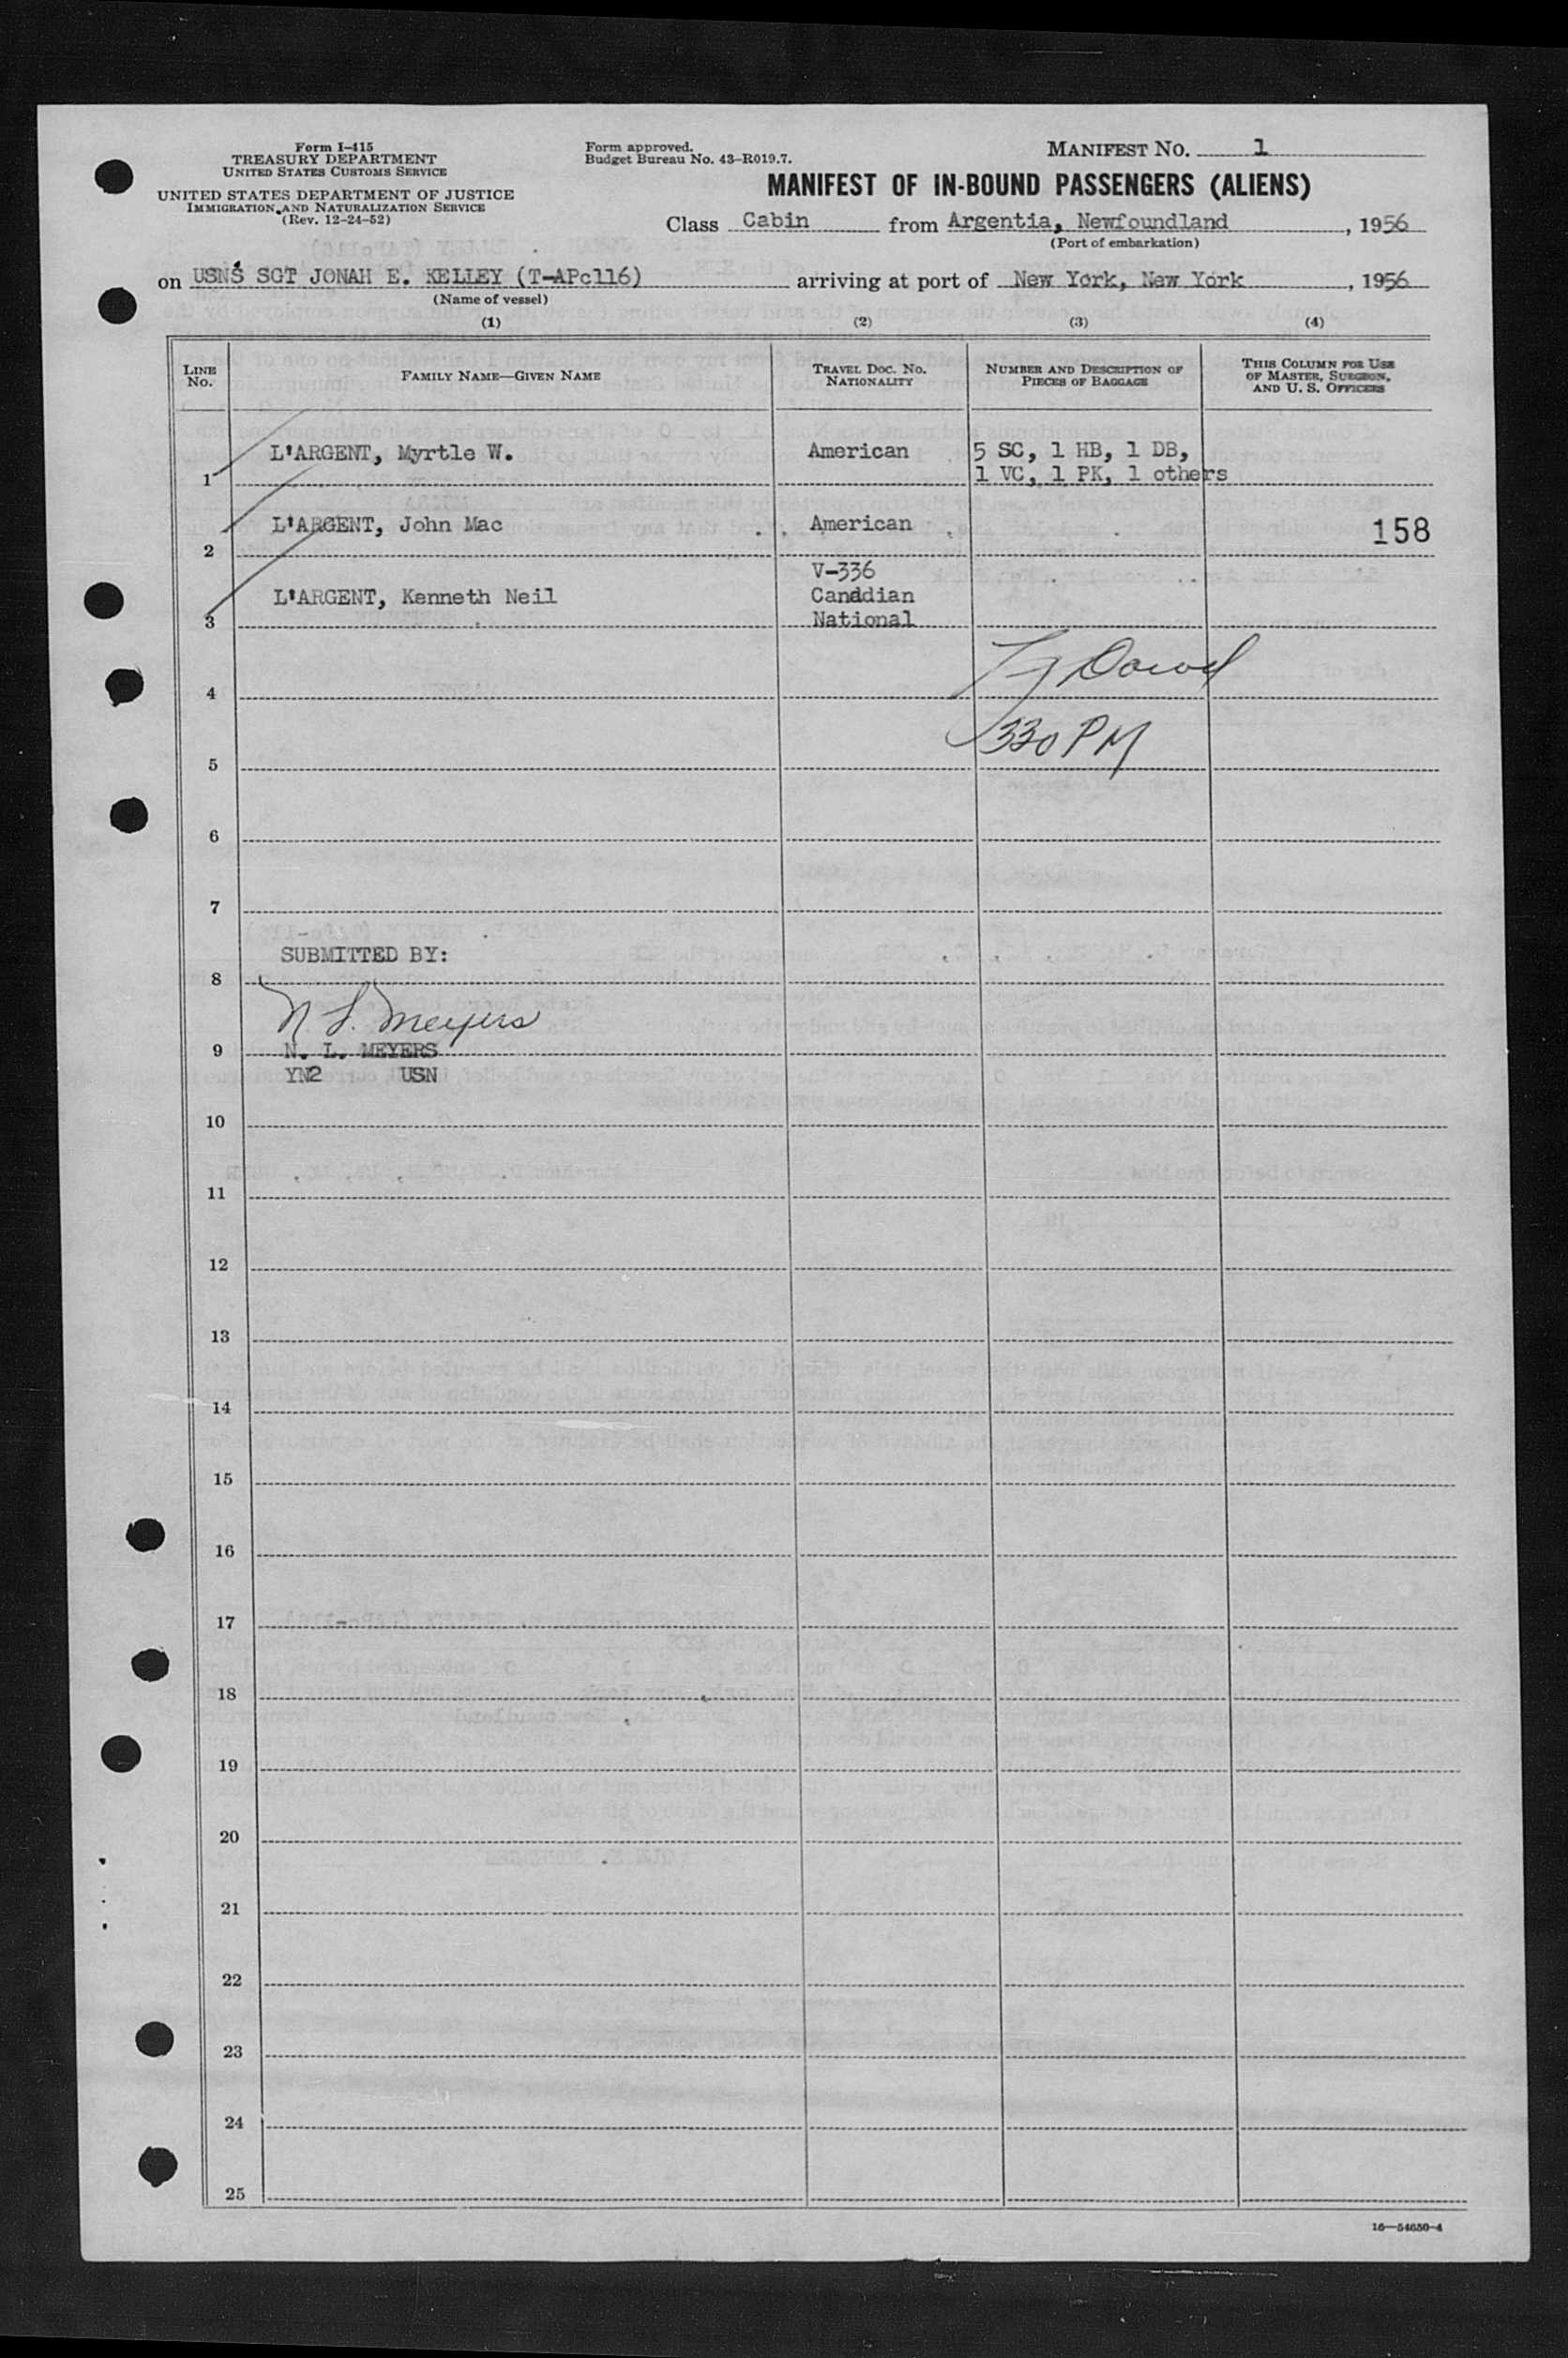 Form I-415
TREASURY DEPARTMENT
UNITED STATES CUSTOMS SERVICE
UNITED STATES DEPARTMENT OF JUSTICE
IMMIGRATION AND NATURALIZATION SERVICE
(Rev. 12-24-52)
Form approved.
Budget Bureau No. 43-R019.7.
MANIFEST NO. 1
MANIFEST OF IN-BOUND PASSENGERS (ALIENS)
Class Cabin from Argentia, Newfoundland, 1956
(Port of embarkation)
on USNS SGT JONAH E. KELLEY (T-APc116) arriving at port of New York, New York, 1956
(Name of vessel)
(1) (2) (3) (4)
LINE No. FAMILY NAME—GIVEN NAME TRAVEL DOC. NO. NATIONALITY NUMBER AND DESCRIPTION OF PIECES OF BAGGAGE THIS COLUMN FOR USE OF MASTER, SURGEON, AND U. S. OFFICERS
L'ARGENT, Myrtle W. American 5 SC, 1 HB, 1 DB,
1 1 VC, 1 PK, 1 others
L'ARGENT, John Mac American 158
2
V-336
L'ARGENT, Kenneth Neil Canadian
3 National
Dowd
4
330 PM
5
6
7
SUBMITTED BY:
8
N. L. Meyers
9 N. L. MEYERS
YN2 USN
10
11
12
13
14
15
16
17
18
19
20
21
22
23
24
25
16—54650-4